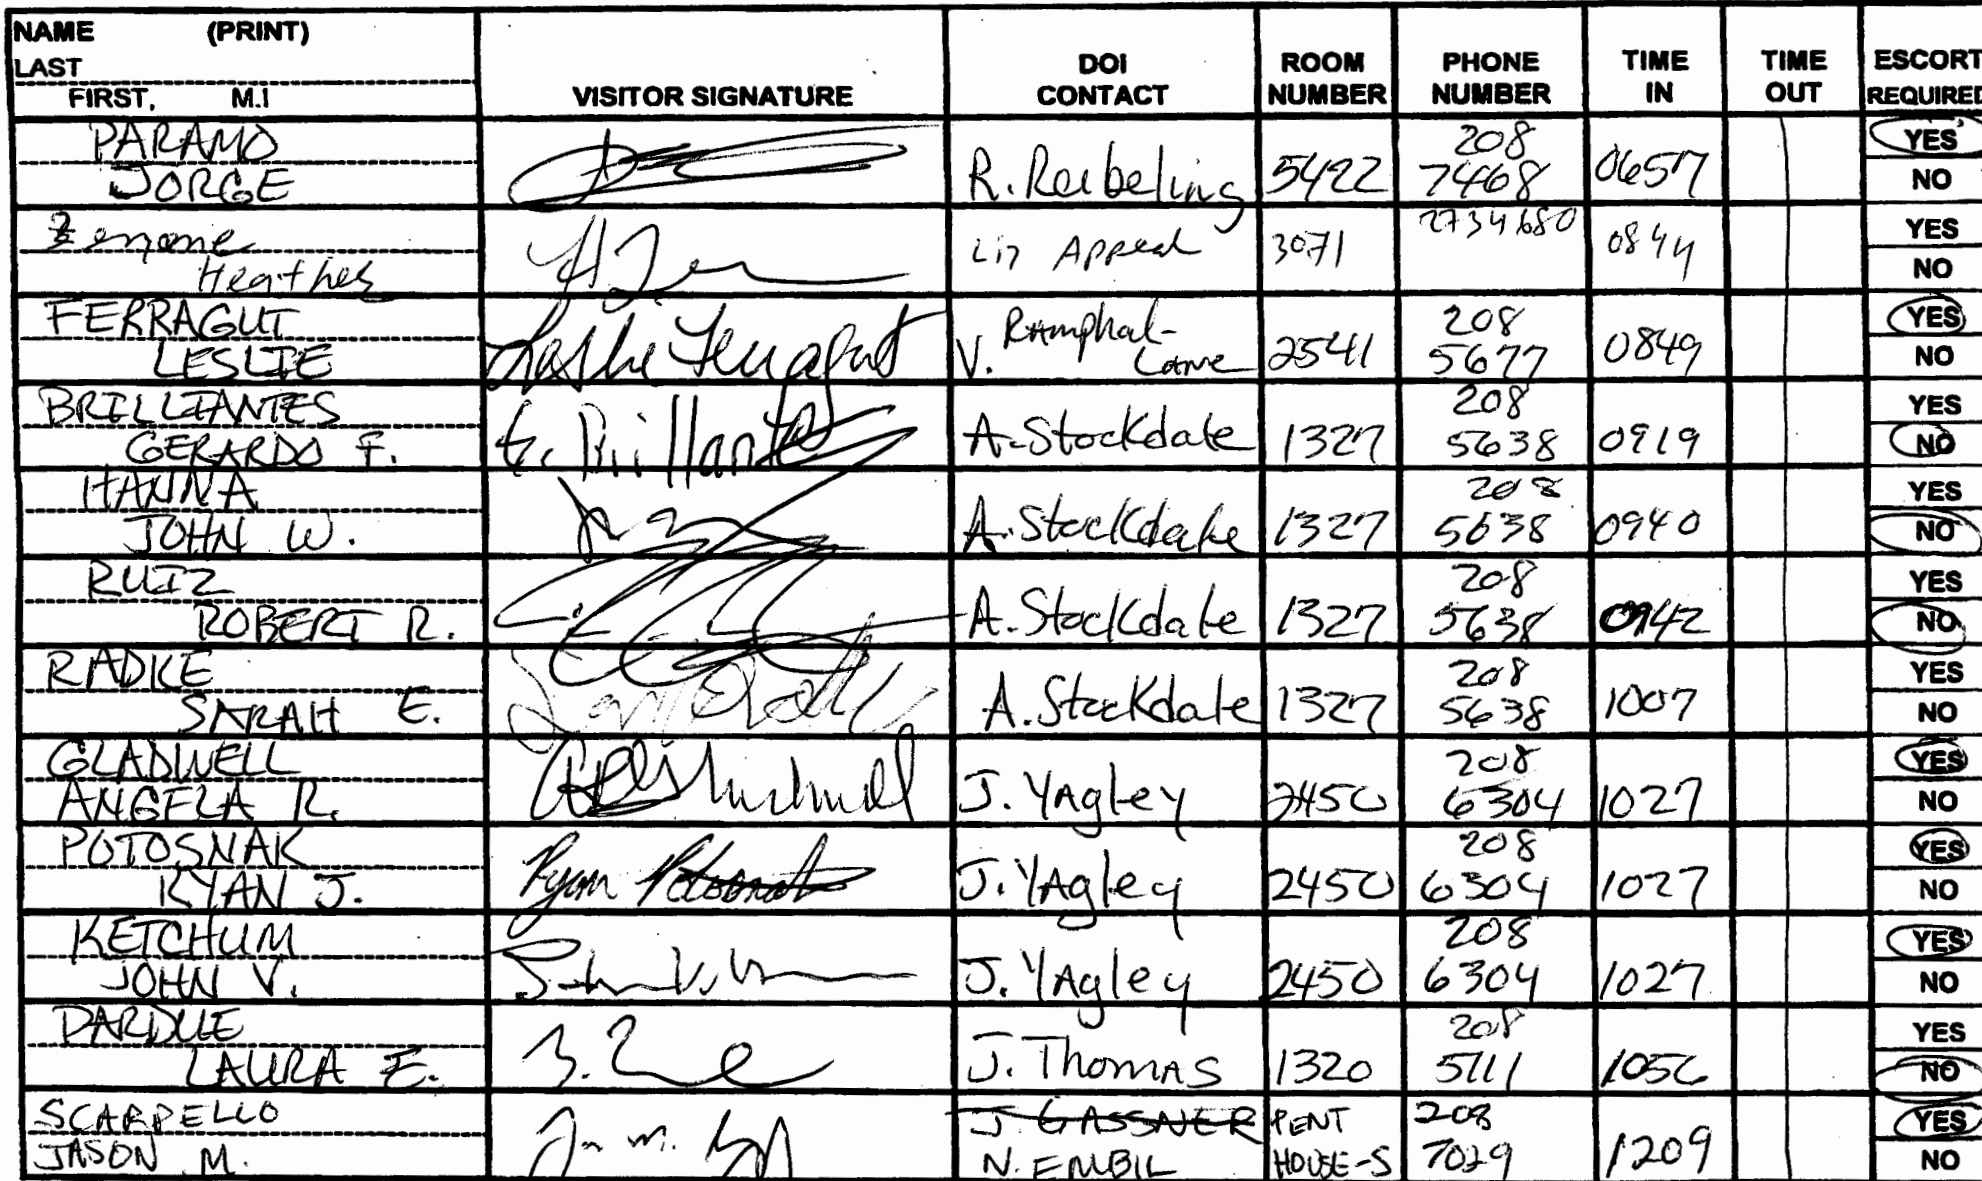 NAME (PRINT)
LAST
FIRST, M.I
VISITOR SIGNATURE
DOI CONTACT
ROOM NUMBER
PHONE NUMBER
TIME IN
TIME OUT
ESCORT REQUIRED
PARAMO
JORGE
R. Reibeling 5422 208 7468 0657 YES NO
Heather
Liz Appeal 3071 2734680 0844 YES NO
FERRAGUT
LESLIE
Leslie Ferragut
V. Ramphal-Lane 2541 208 5677 0849 YES NO
BRILLIANTES
GERARDO F.
G. Brillante
A. Stockdale 1327 208 5638 0919 YES NO
HANNA
JOHN W.
A. Stockdale 1327 208 5638 0940 YES NO
RUIZ
ROBERT R.
A. Stockdale 1327 208 5638 0942 YES NO
RADKE
SARAH E.
A. Stockdale 1327 208 5638 1007 YES NO
GLADWELL
ANGELA R.
J. YAgley 2450 208 6304 1027 YES NO
POTOSNAK
RYAN J.
Ryan Potosnak
J. YAgley 2450 208 6304 1027 YES NO
KETCHUM
JOHN V.
J. YAgley 2450 208 6304 1027 YES NO
PARDUE
LAURA E.
J. Thomas 1320 208 5111 1056 YES NO
SCARPELLO
JASON M.
J. GASSNER
N. EMBIL PENT HOUSE-S 208 7029 1209 YES NO